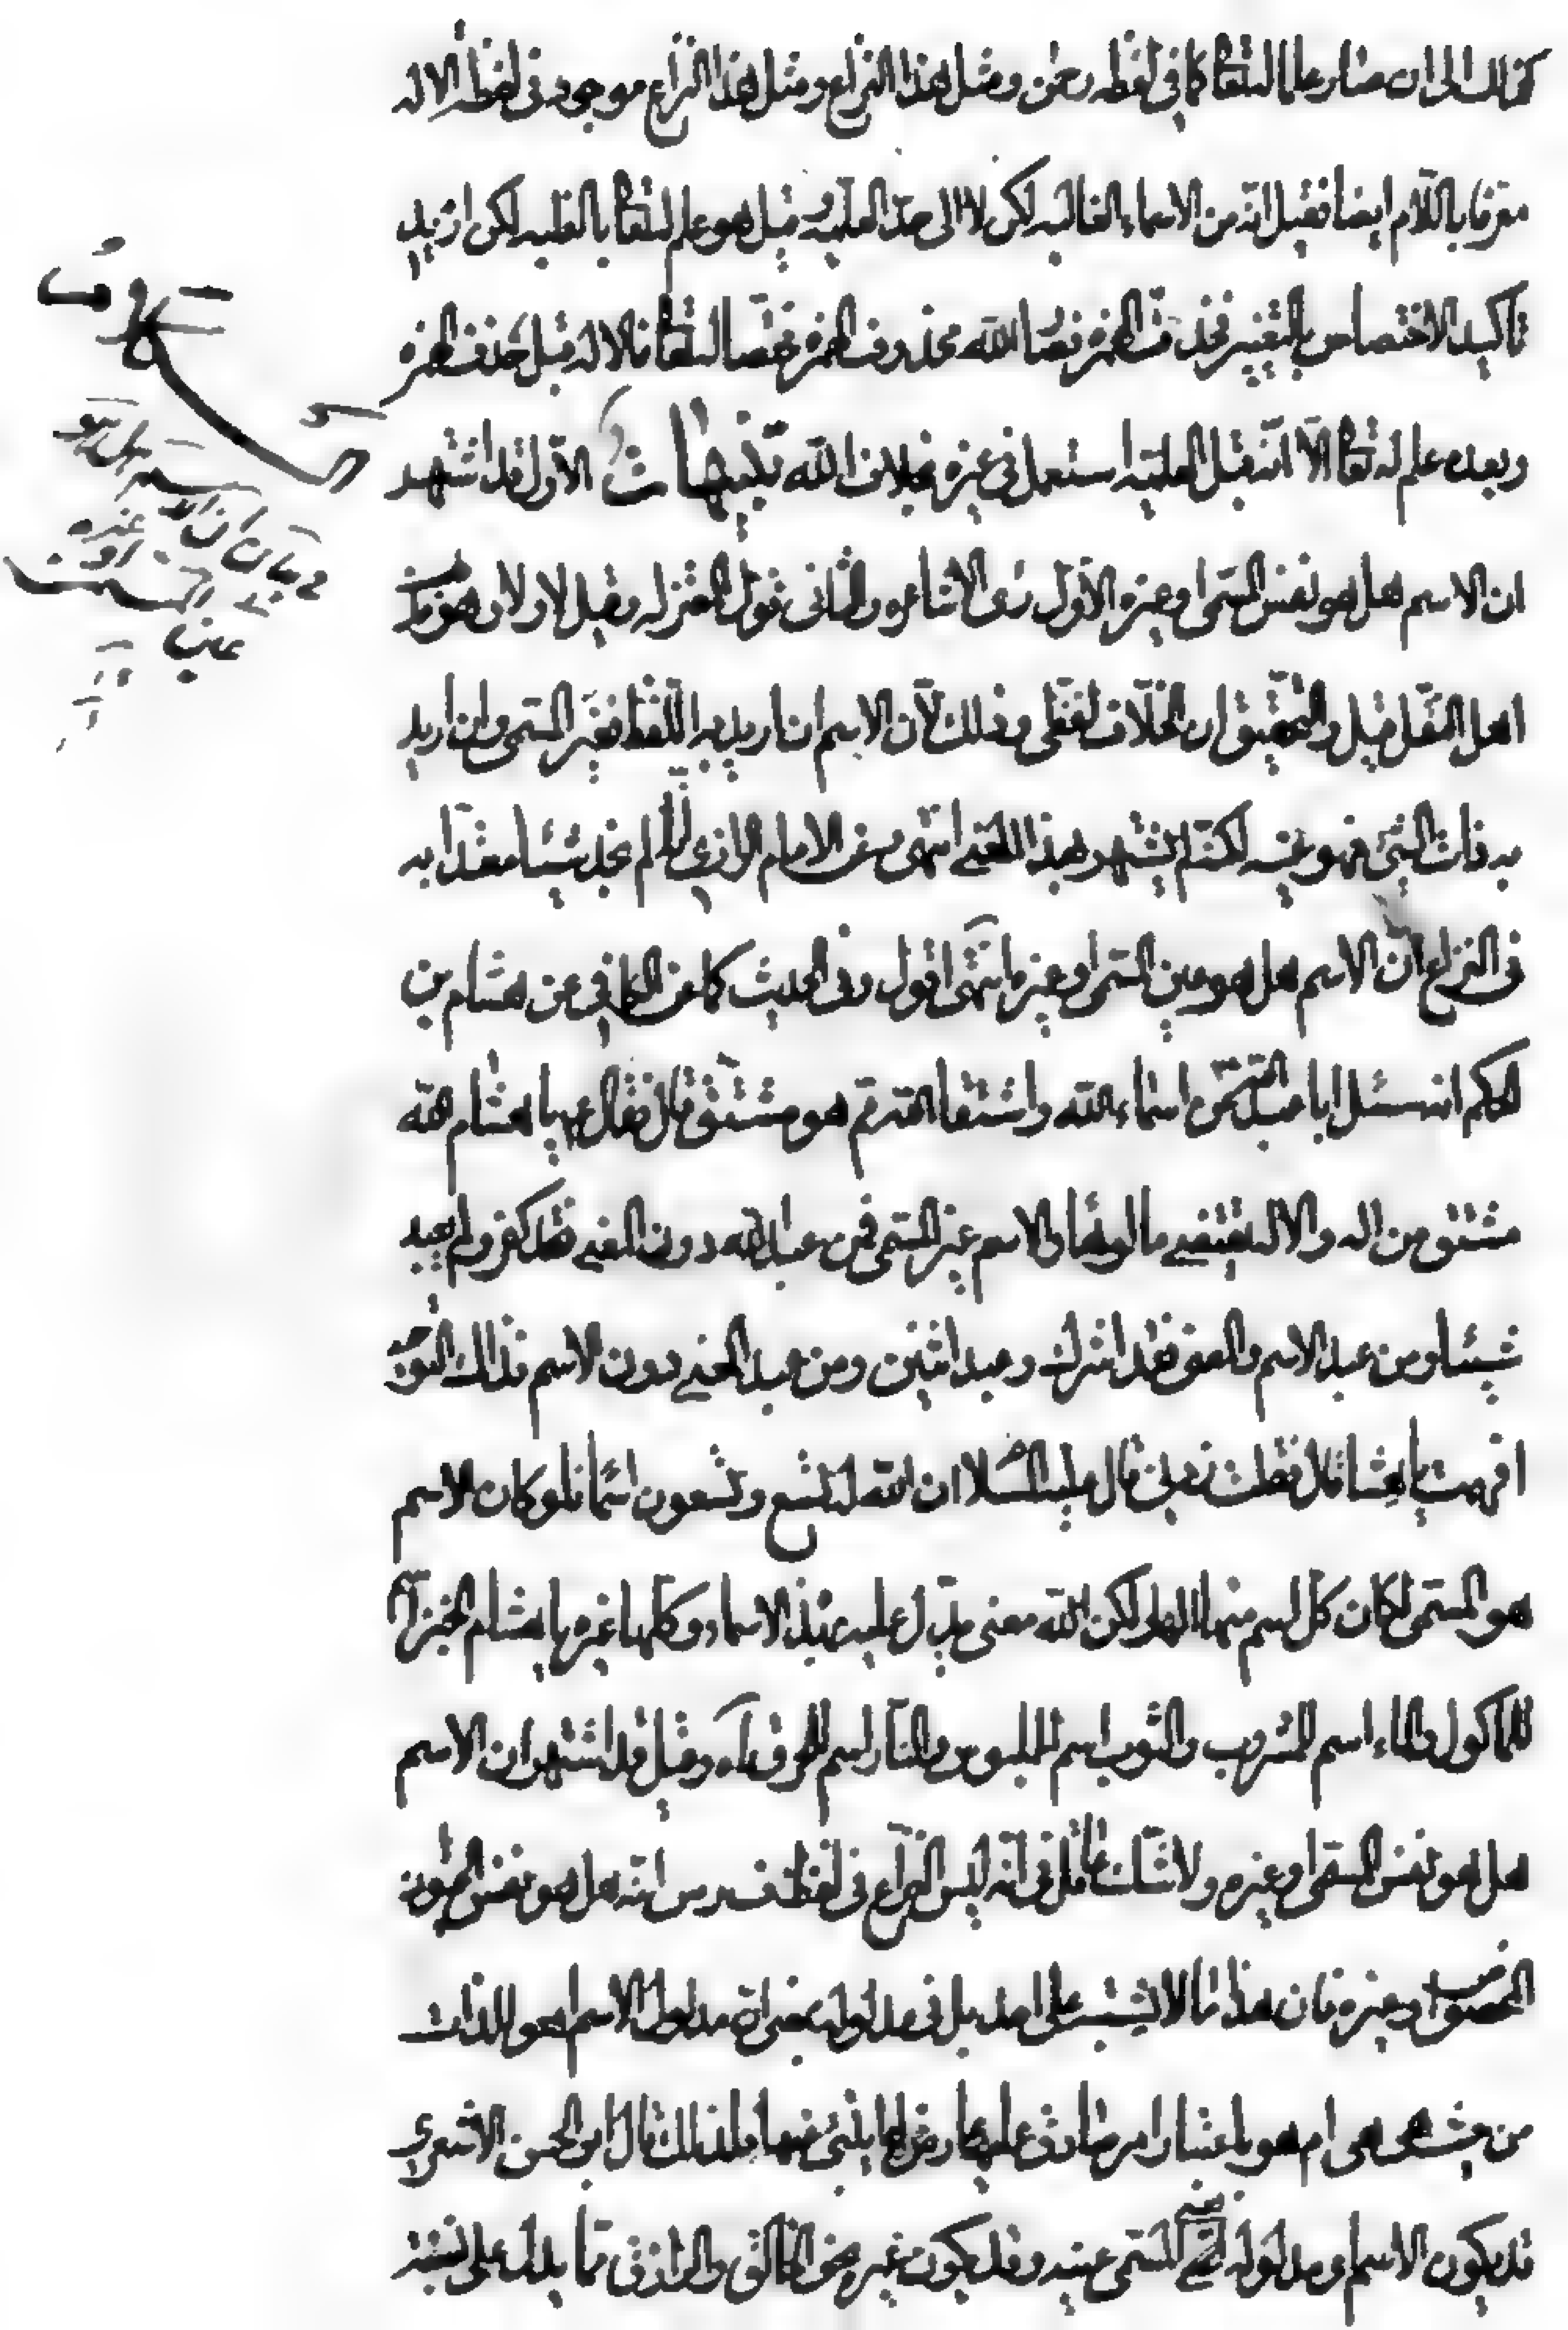 كذلك الى ان صار علما له تعا كما في لفظه رحمن ومثل هذا النزاع ومثل هذا النزاع موجود في لفظ الاله
معرفا باللام ايضا فقيل انه من الاسماء الغالبه لكن لا الى حد العلميه وقيل هو علم له تعا بالغلبه لكن اريد
تاكيد الاختصاص بالتغيير فحذفت الهمزه فصار الله محذوف الهمزه مختصا له تعا فالاله قبل حذف الهمزه
وبعده علم له تعا الا انه قبل العلميه استعمل في غيره بخلاف الله تنبيهات الاول قد اشتهر
ان الاسم هل هو نفس المسمى او غيره الاول رئى الاشاعره والثانى قول المعتزله وقيل لا ولا وهو
اهل النقل قيل والتحقيق ان الخلاف لفظى وذلك لان الاسم ان اريد به اللفظ فغير المسمى وان اريد
به ذات الشئ فهو نفسه لكنه لم يشتهر بهذا المعنى انتهى وعن الامام الرازي لم نجد شيئا معتدا به
فى النزاع ان الاسم هل هو عين المسمى او غيره انتهى اقول وفى الحديث كما عن الكافي عن هشام بن
الحكم انه سئل ابا عبد الله عن اسماء الله واشتقاقها الله مم هو مشتق قال فقال يا هشام الله
مشتق من اله والاله يقتضى مالوها والاسم غير المسمى فمن عبد الله دون المعنى فقد كفر ولم يعبد
شيئا ومن عبد الاسم والمعنى فقد اشرك وعبد اثنين ومن عبد المعنى دون الاسم فذلك التوحيد
افهمت يا هشام قال فقلت زدنى قال عليه السلام ان لله تسع وتسعون اسما فلو كان الاسم
هو المسمى لكان كل اسم منها الها ولكن الله معنى يدل عليه بهذه الاسماء وكلها غيره يا هشام الخبز اسم
للماكول والماء اسم للمشروب والثوب اسم للملبوس والنار اسم للمحرق آه وقيل قد اشتهر ان الاسم
هل هو نفس المسمى او غيره ولا شك عاقل فى انه ليس النزاع فى لفظ ف ر س انه هل هو نفس الحيوان
المخصوص او غيره فان هذا مما لا يشتبه على احد بل فى مدلوله بمعنى ان مدلول الاسم هو الذات
من حيث هى هى ام هو باعتبار امر صادق عليها عارض لها ينبئ عنها ولذلك قال ابو الحسن الاشعري
قد يكون الاسم ومدلوله المسمى عينه وقد يكون غيره نحو الخالق والرازق مما يدل على نسبة